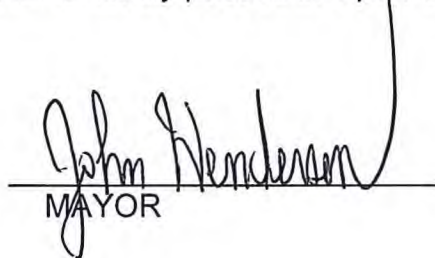 John Henderson
MAYOR